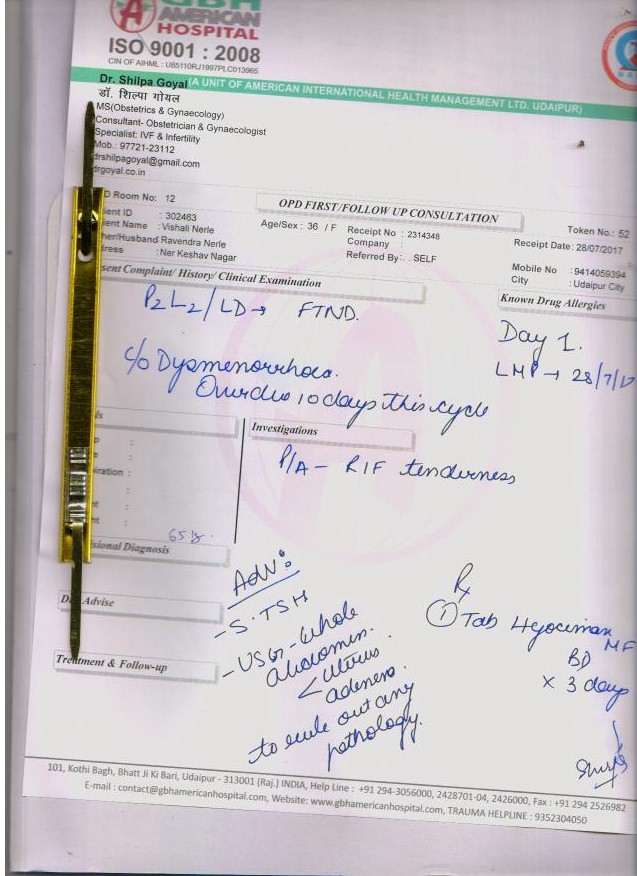 GBH
AMERICAN
HOSPITAL
ISO 9001 : 2008
CIN OF AIHML : U85110RJ1997PLC013965
(A UNIT OF AMERICAN INTERNATIONAL HEALTH MANAGEMENT LTD. UDAIPUR)
Dr. Shilpa Goyal
डॉ. शिल्पा गोयल
MS(Obstetrics & Gynaecology)
Consultant- Obstetrician & Gynaecologist
Specialist: IVF & Infertility
Mob.: 97721-23112
drshilpagoyal@gmail.com
drgoyal.co.in
D Room No: 12
OPD FIRST/FOLLOW UP CONSULTATION
Token No.: 52
ient ID : 302463
Age/Sex : 36 / F
Receipt No : 2314348
Receipt Date: 28/07/2017
ient Name : Vishali Nerle
Company :
her/Husband Ravendra Nerle
Referred By: . SELF
Mobile No : 9414059394
ress : Ner Keshav Nagar
City : Udaipur City
sent Complaint/ History/ Clinical Examination
Known Drug Allergies
P2L2/LD→ FTND.
Day 1.
LMP → 28/7/17
c/o Dysmenorrhoea.
Overdue 10 days this cycle
ls
Investigations
P/A - RIF tenderness
p :
:
iration :
:
nt :
ht :
65
sional Diagnosis
Adv:
- S. TSH
- USG - Whole
abdomen.
< uterus
adenexa.
to rule out any
pathology.
Rx
① Tab Hyocimax MF
BD
x 3 days
Advise
Treatment & Follow-up
101, Kothi Bagh, Bhatt Ji Ki Bari, Udaipur - 313001 (Raj.) INDIA, Help Line : +91 294-3056000, 2428701-04, 2426000, Fax : +91 294 2526982
E-mail : contact@gbhamericanhospital.com, Website: www.gbhamericanhospital.com, TRAUMA HELPLINE : 9352304050